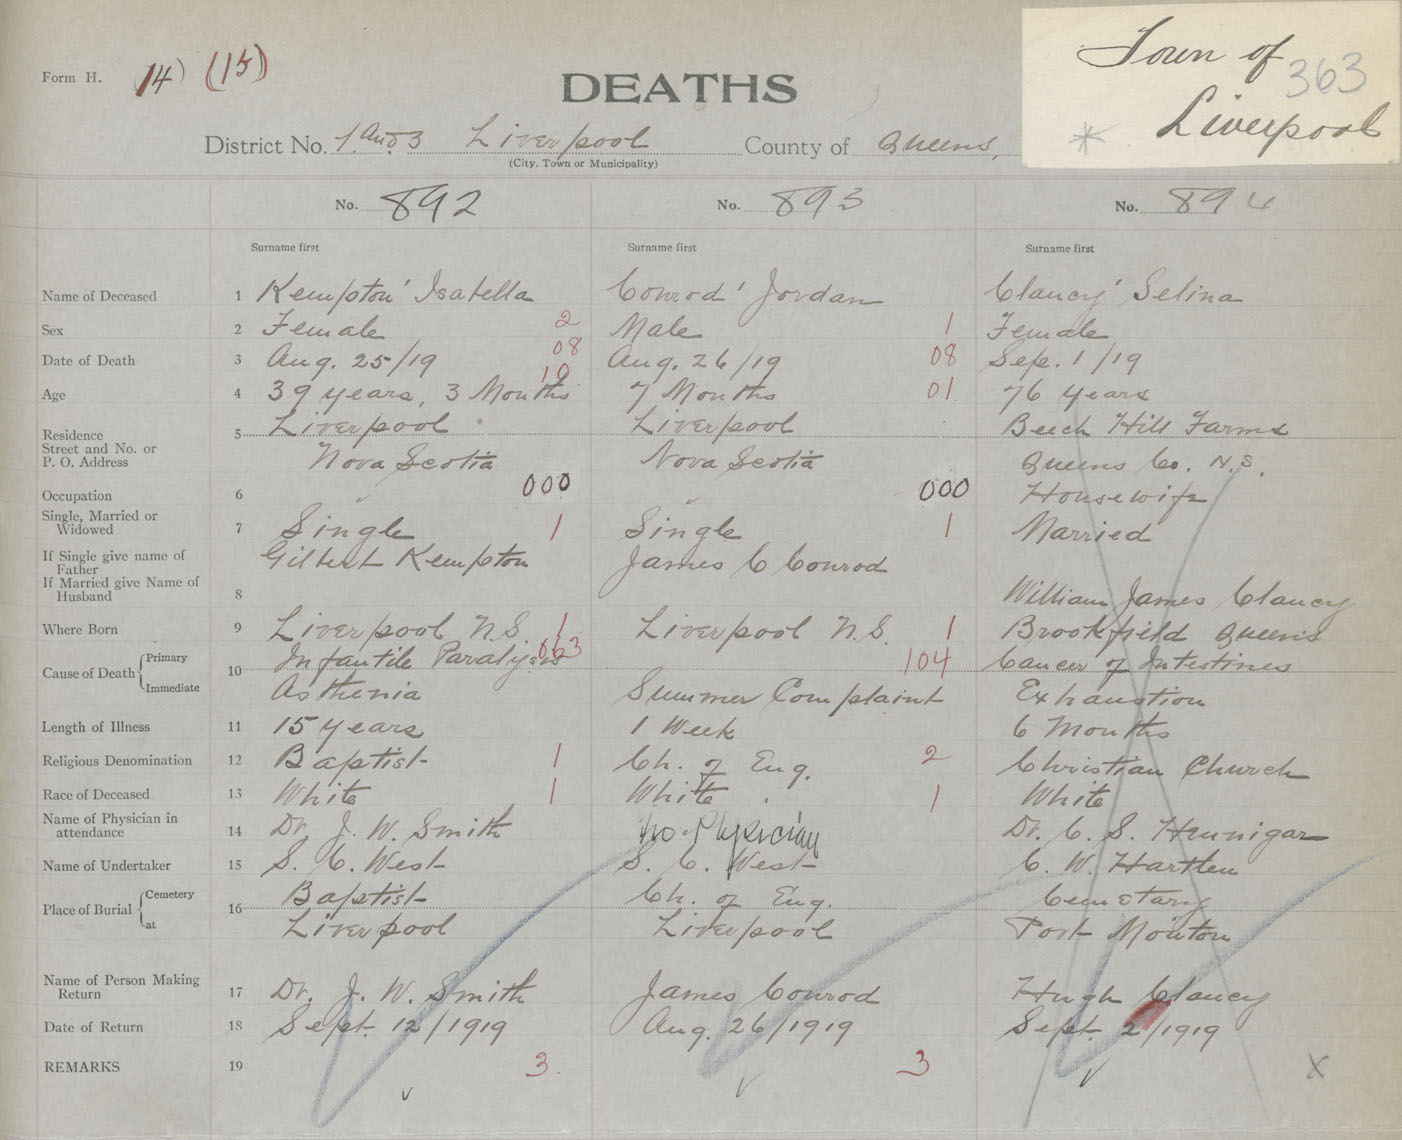 Form H. 14) (15)
DEATHS
Town of
363
Liverpool
District No. 1 and 3 Liverpool County of Queens,
(City, Town or Municipality)
No. 892 No. 893 No. 894
Surname first Surname first Surname first
Name of Deceased 1 Kempton' Isabella Conrod' Jordan Clancy' Selina
Sex 2 Female 2 Male 1 Female
Date of Death 3 Aug. 25/19 08 Aug. 26/19 08 Sep. 1/19
Age 4 39 years, 3 Months 10 7 Months 01 76 years
Residence 5 Liverpool Liverpool Beech Hill Farms
Street and No. or
P. O. Address Nova Scotia Nova Scotia Queens Co. N.S.
Occupation 6 000 000 Housewife
Single, Married or
Widowed 7 Single 1 Single 1 Married
If Single give name of
Father Gilbert Kempton James C Conrod
If Married give Name of
Husband 8 William James Clancy
Where Born 9 Liverpool N.S. 1 Liverpool N.S. 1 Brookfield Queens
Cause of Death Primary 10 Infantile Paralysis 063 104 Cancer of Intestines
Immediate Asthenia Summer Complaint Exhaustion
Length of Illness 11 15 years 1 Week 6 Months
Religious Denomination 12 Baptist 1 Ch. of Eng. 2 Christian Church
Race of Deceased 13 White 1 White 1 White
Name of Physician in
attendance 14 Dr. J. W. Smith No Physician Dr. C. S. Hennigar
Name of Undertaker 15 S. C. West S. C. West C. W. Hartlen
Place of Burial Cemetery 16 Baptist Ch. of Eng. Cemetary
at Liverpool Liverpool Port Mouton
Name of Person Making
Return 17 Dr. J. W. Smith James Conrod Hugh Clancy
Date of Return 18 Sept. 12/1919 Aug. 26/1919 Sept. 2/1919
REMARKS 19 3. 3 X